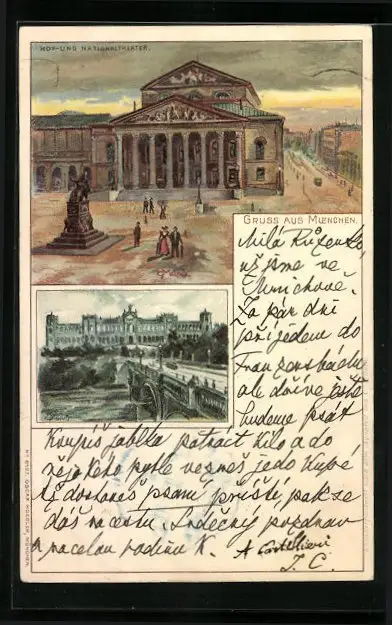 HOF- UND NATIONALTHEATER.
GRUSS AUS MUENCHEN.
Milá Růženko
už jsme ve
Mnichově.
Za pár dní
přijedem do
Franzensbadu
ale dříve ještě
budeme psát
Koupíš jablka patnáct kilo a do
nějakého pytle vezmeš jedo
až dostaneš psaní příští, pak se
dáš na cestu. Srdečný pozdrav
a na celou rodinu K.
J. C.